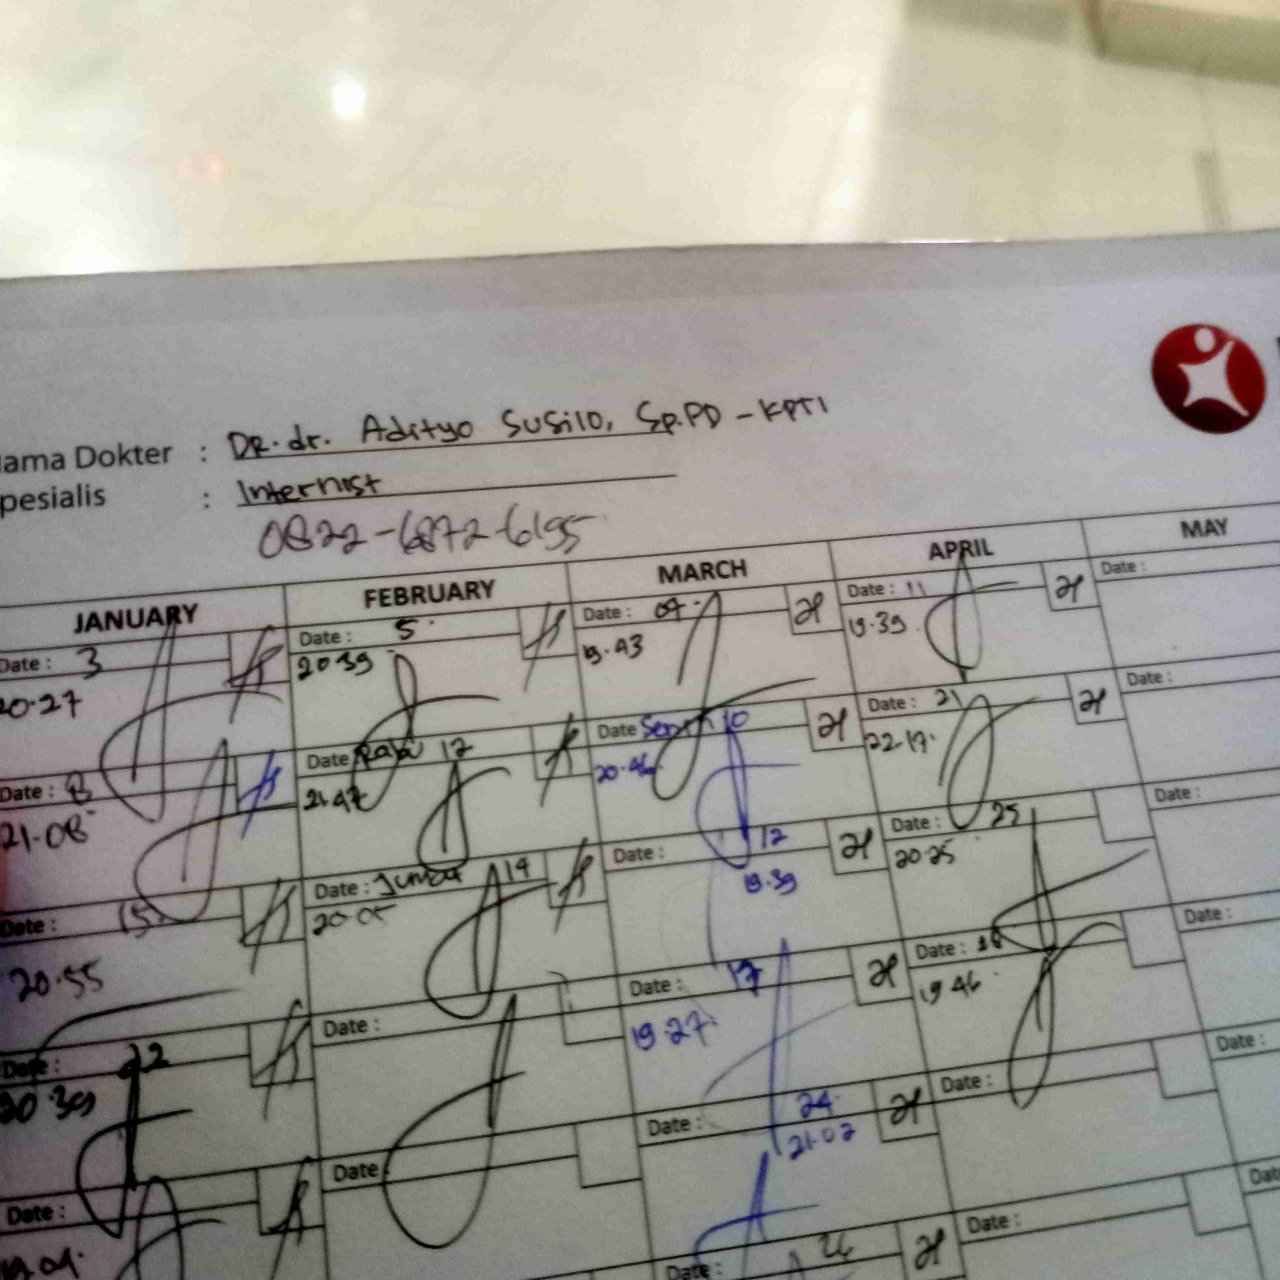 ama Dokter : DR. dr. Adityo Susilo, Sp.PD - KPTI
pesialis : Internist
0822-6872-6195
JANUARY FEBRUARY MARCH APRIL MAY
Date : 3 Date : 5 Date : 04 Date : 11 Date :
20.27 20.39 19.43 19.39
Date : 8 Date Rabu 12 Date Senin 10 Date : 21 Date :
21.08 21.47 20.46 22.17
Date : 15 Date : Jumat 14 Date : 12 Date : 25 Date :
20.55 20.05 19.39 20.25
Date : 22 Date : Date : 17 Date : Date :
20.39 19.27 19.46
Date : Date Date : 24 Date : Date :
19.04 21.02
Date : 26 Date : Dat